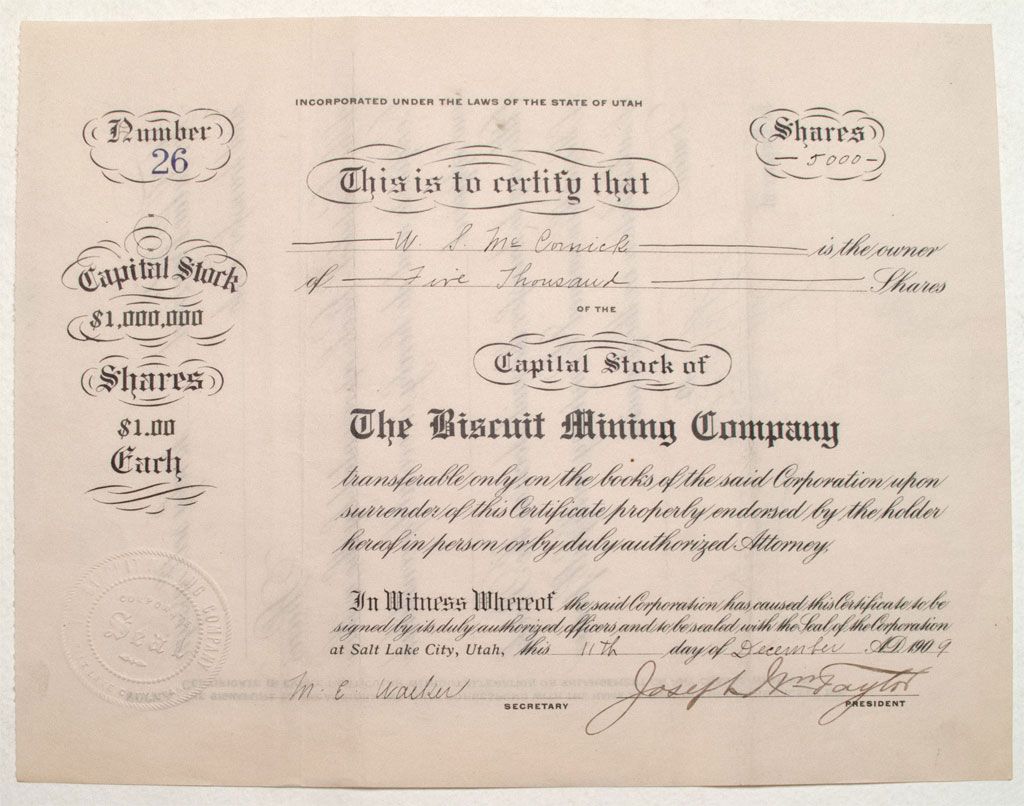 INCORPORATED UNDER THE LAWS OF THE STATE OF UTAH
Number
26
Shares
5000
This is to certify that
W. S. McCornick is the owner
of Five Thousand Shares
OF THE
Capital Stock
$1,000,000
Shares
$1.00
Each
Capital Stock of
The Biscuit Mining Company
transferable only on the books of the said Corporation upon
surrender of this Certificate properly endorsed by the holder
hereof in person, or by duly authorized Attorney.
In Witness Whereof the said Corporation has caused this Certificate to be
signed by its duly authorized officers, and to be sealed with the Seal of the Corporation
at Salt Lake City, Utah, this 11th day of December A.D. 1909
M. E. Walker
SECRETARY
Joseph Wm Taylor
PRESIDENT